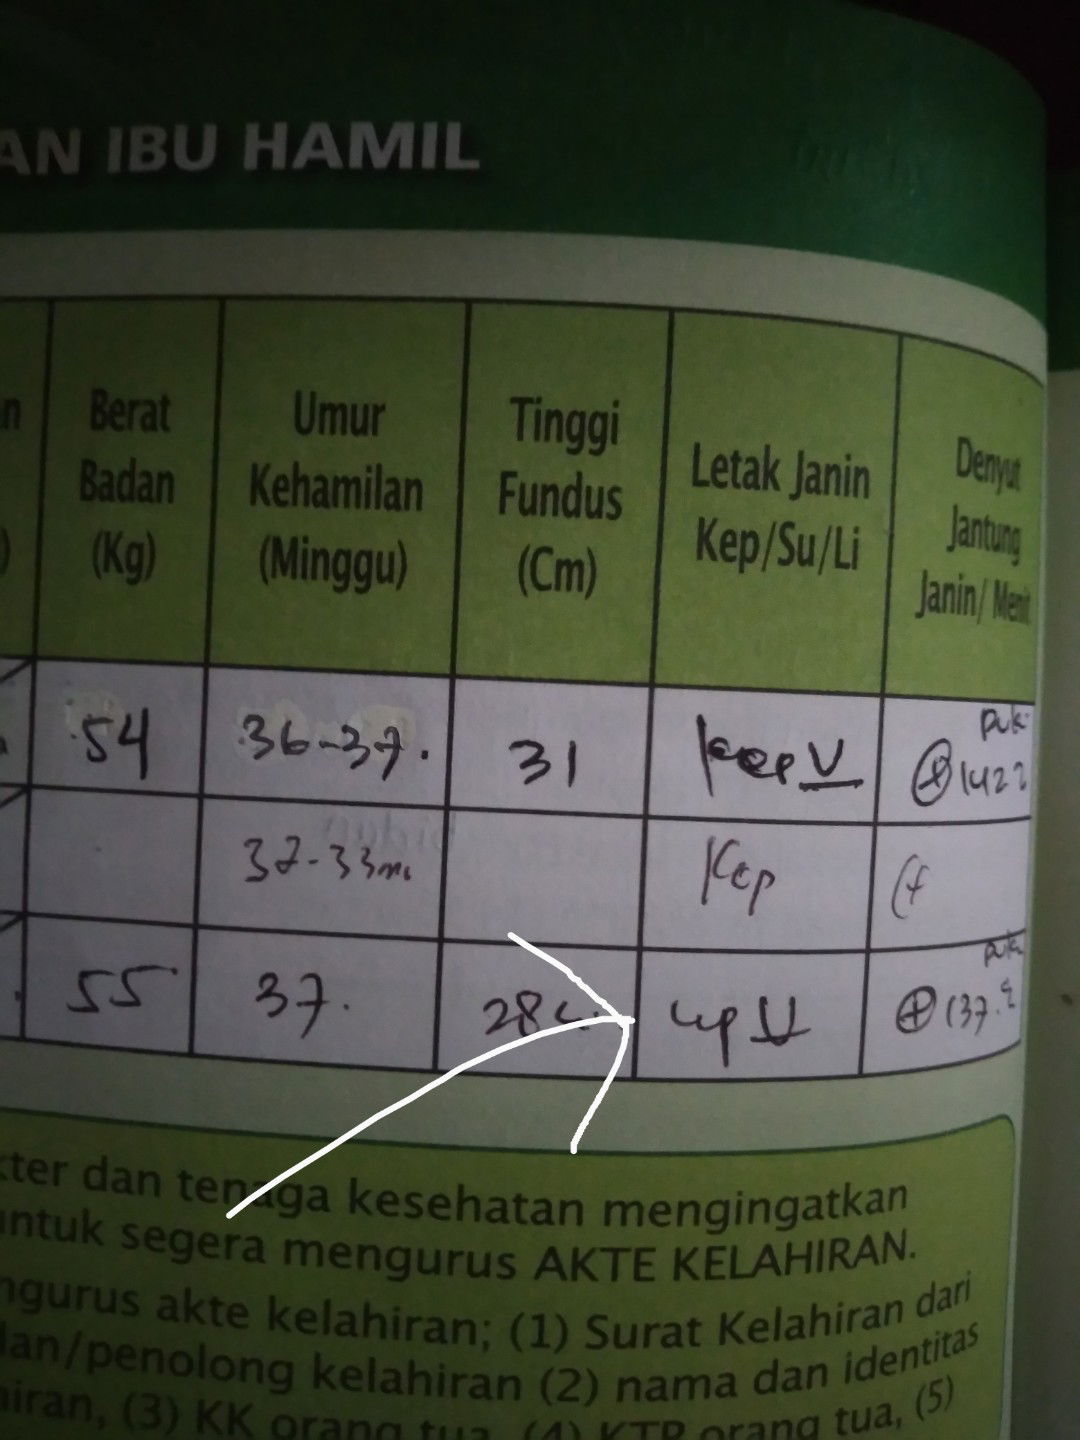 AN IBU HAMIL
n
Berat
Badan
(Kg)
Umur
Kehamilan
(Minggu)
Tinggi
Fundus
(Cm)
Letak Janin
Kep/Su/Li
Denyut
Jantung
Janin/ Menit
)
54
36-37.
31
Kep V
puki
⊕ 142
32-33 m
Kep
(+
55
37.
28
kep U
⊕ 137.
kter dan tenaga kesehatan mengingatkan
untuk segera mengurus AKTE KELAHIRAN.
ngurus akte kelahiran; (1) Surat Kelahiran dari
dan/penolong kelahiran (2) nama dan identitas
hiran, (3) KK orang tua, (4) KTP orang tua, (5)